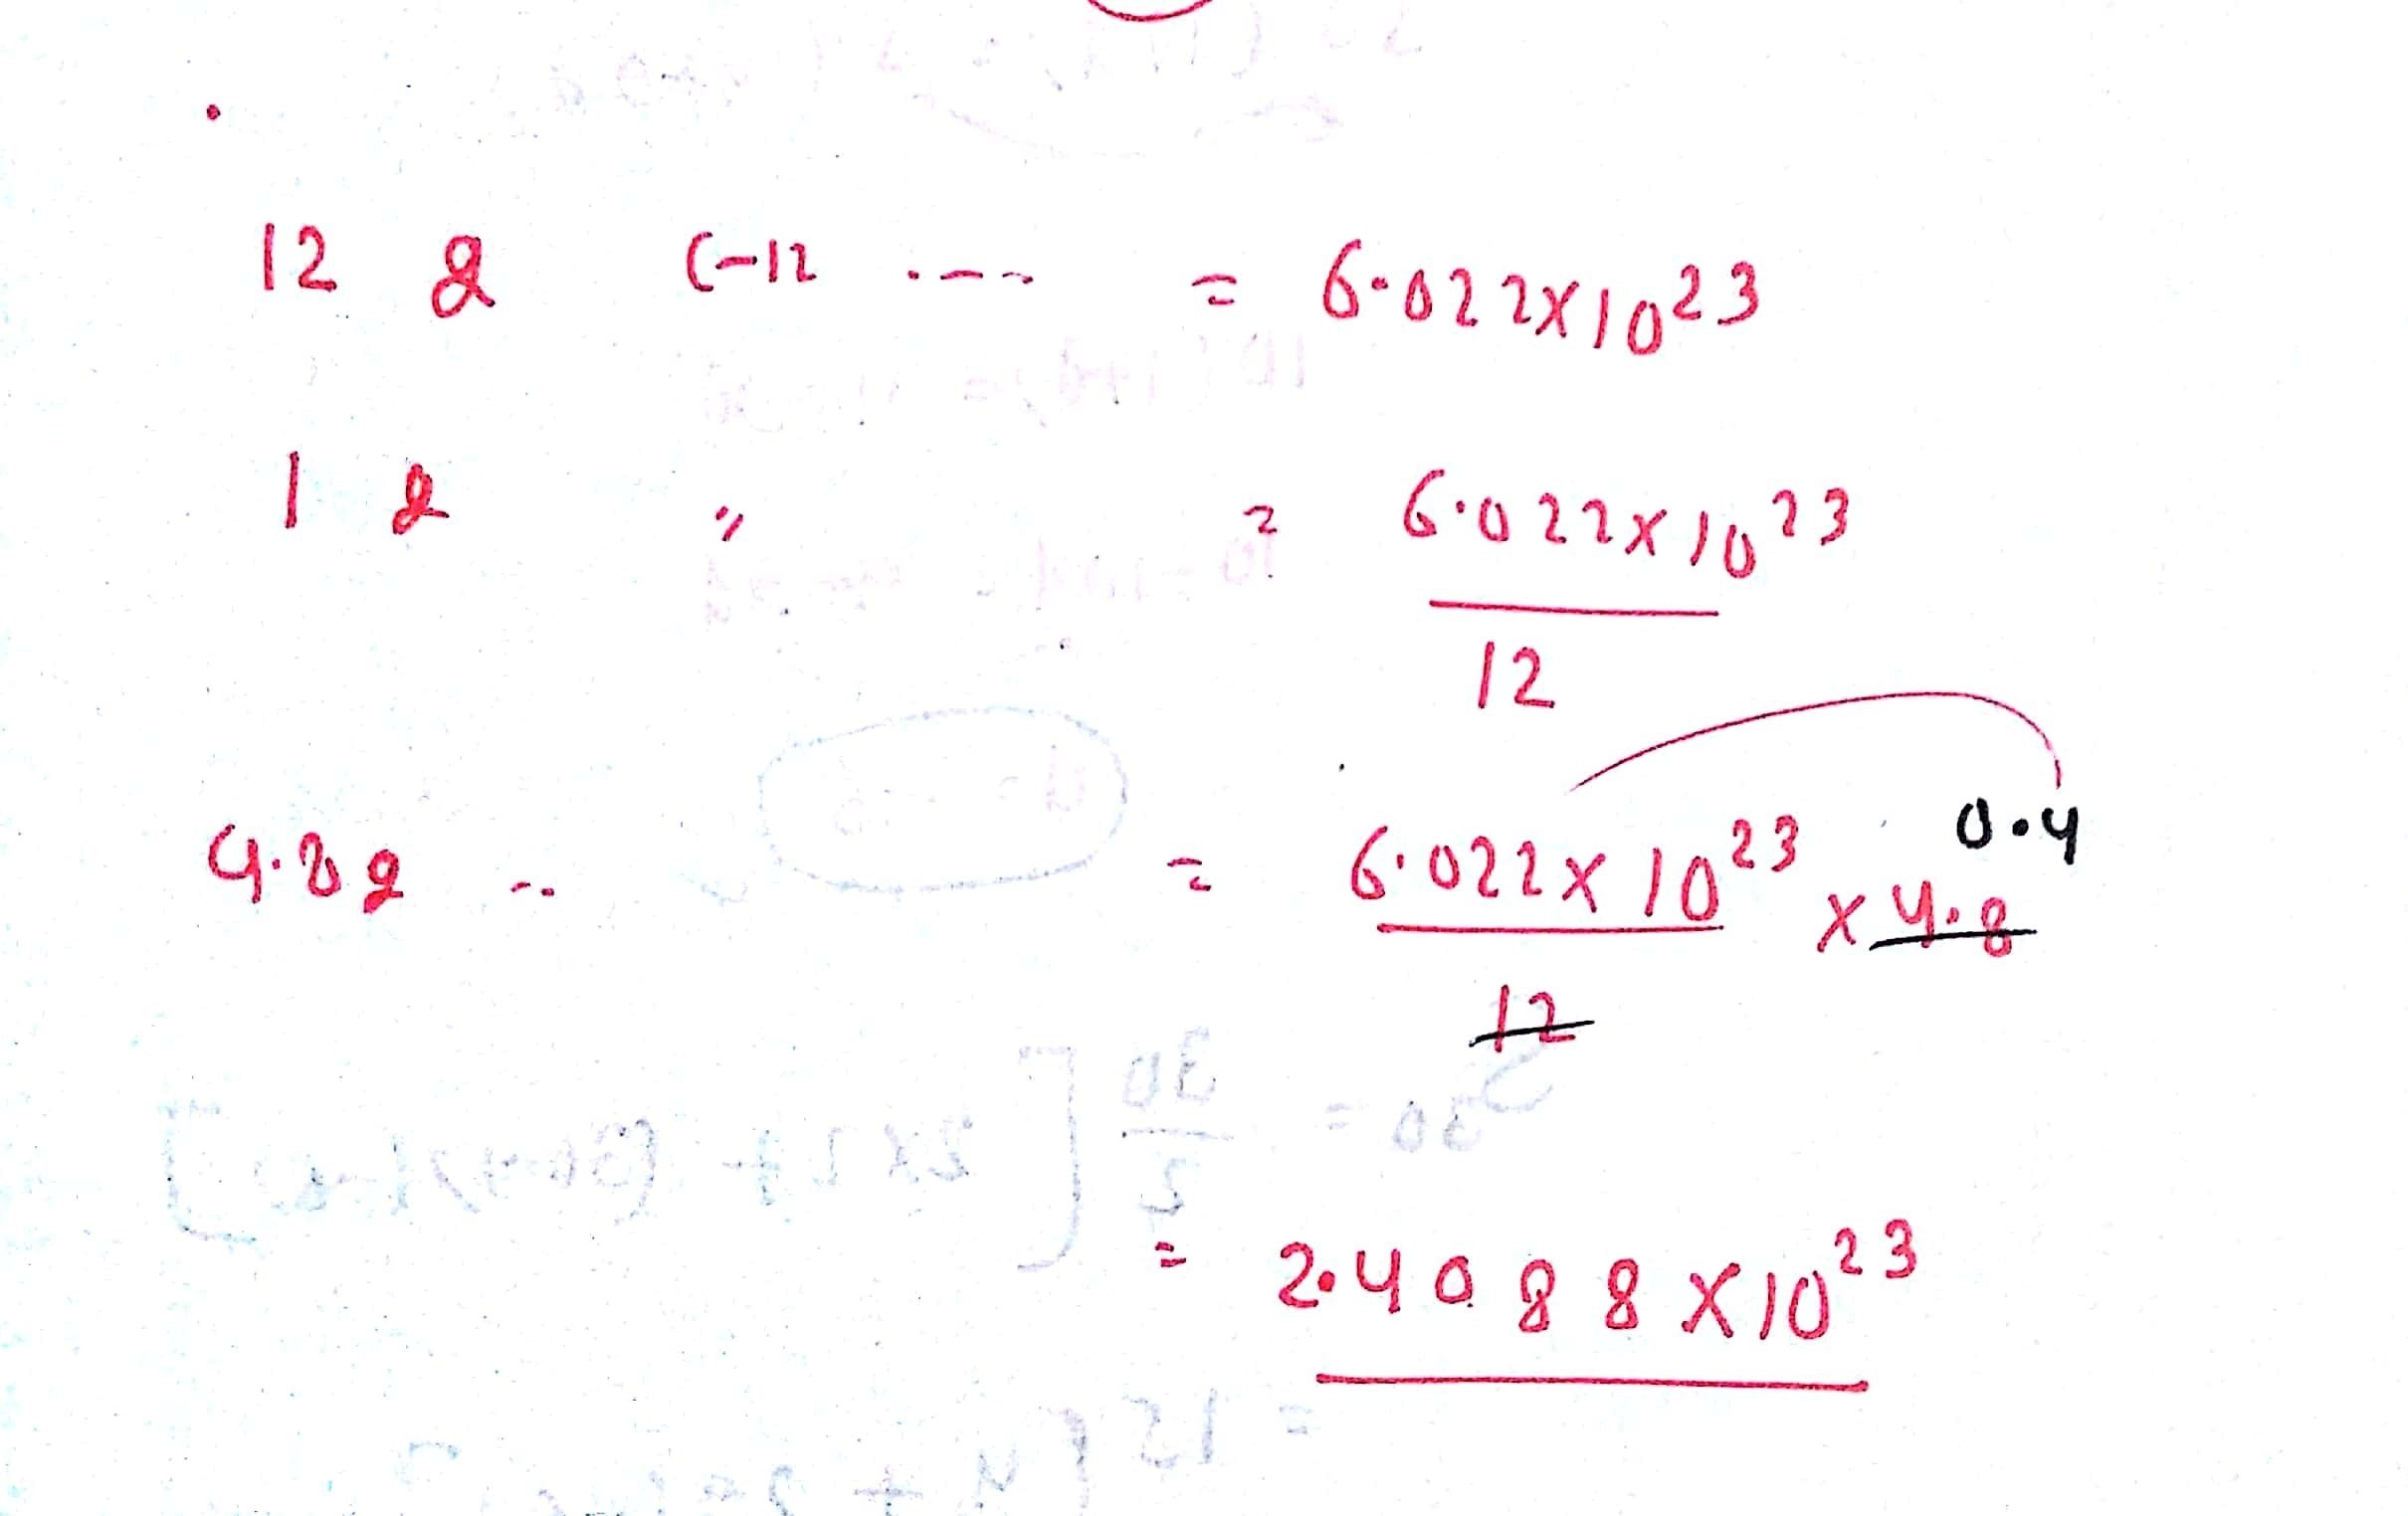 12 g C-12 ---- = 6.022x10²³
1 g " = 6.022x10²³
12
4.8g .. = 6.022x10²³ x 4.8 0.4
12
= 2.4088x10²³